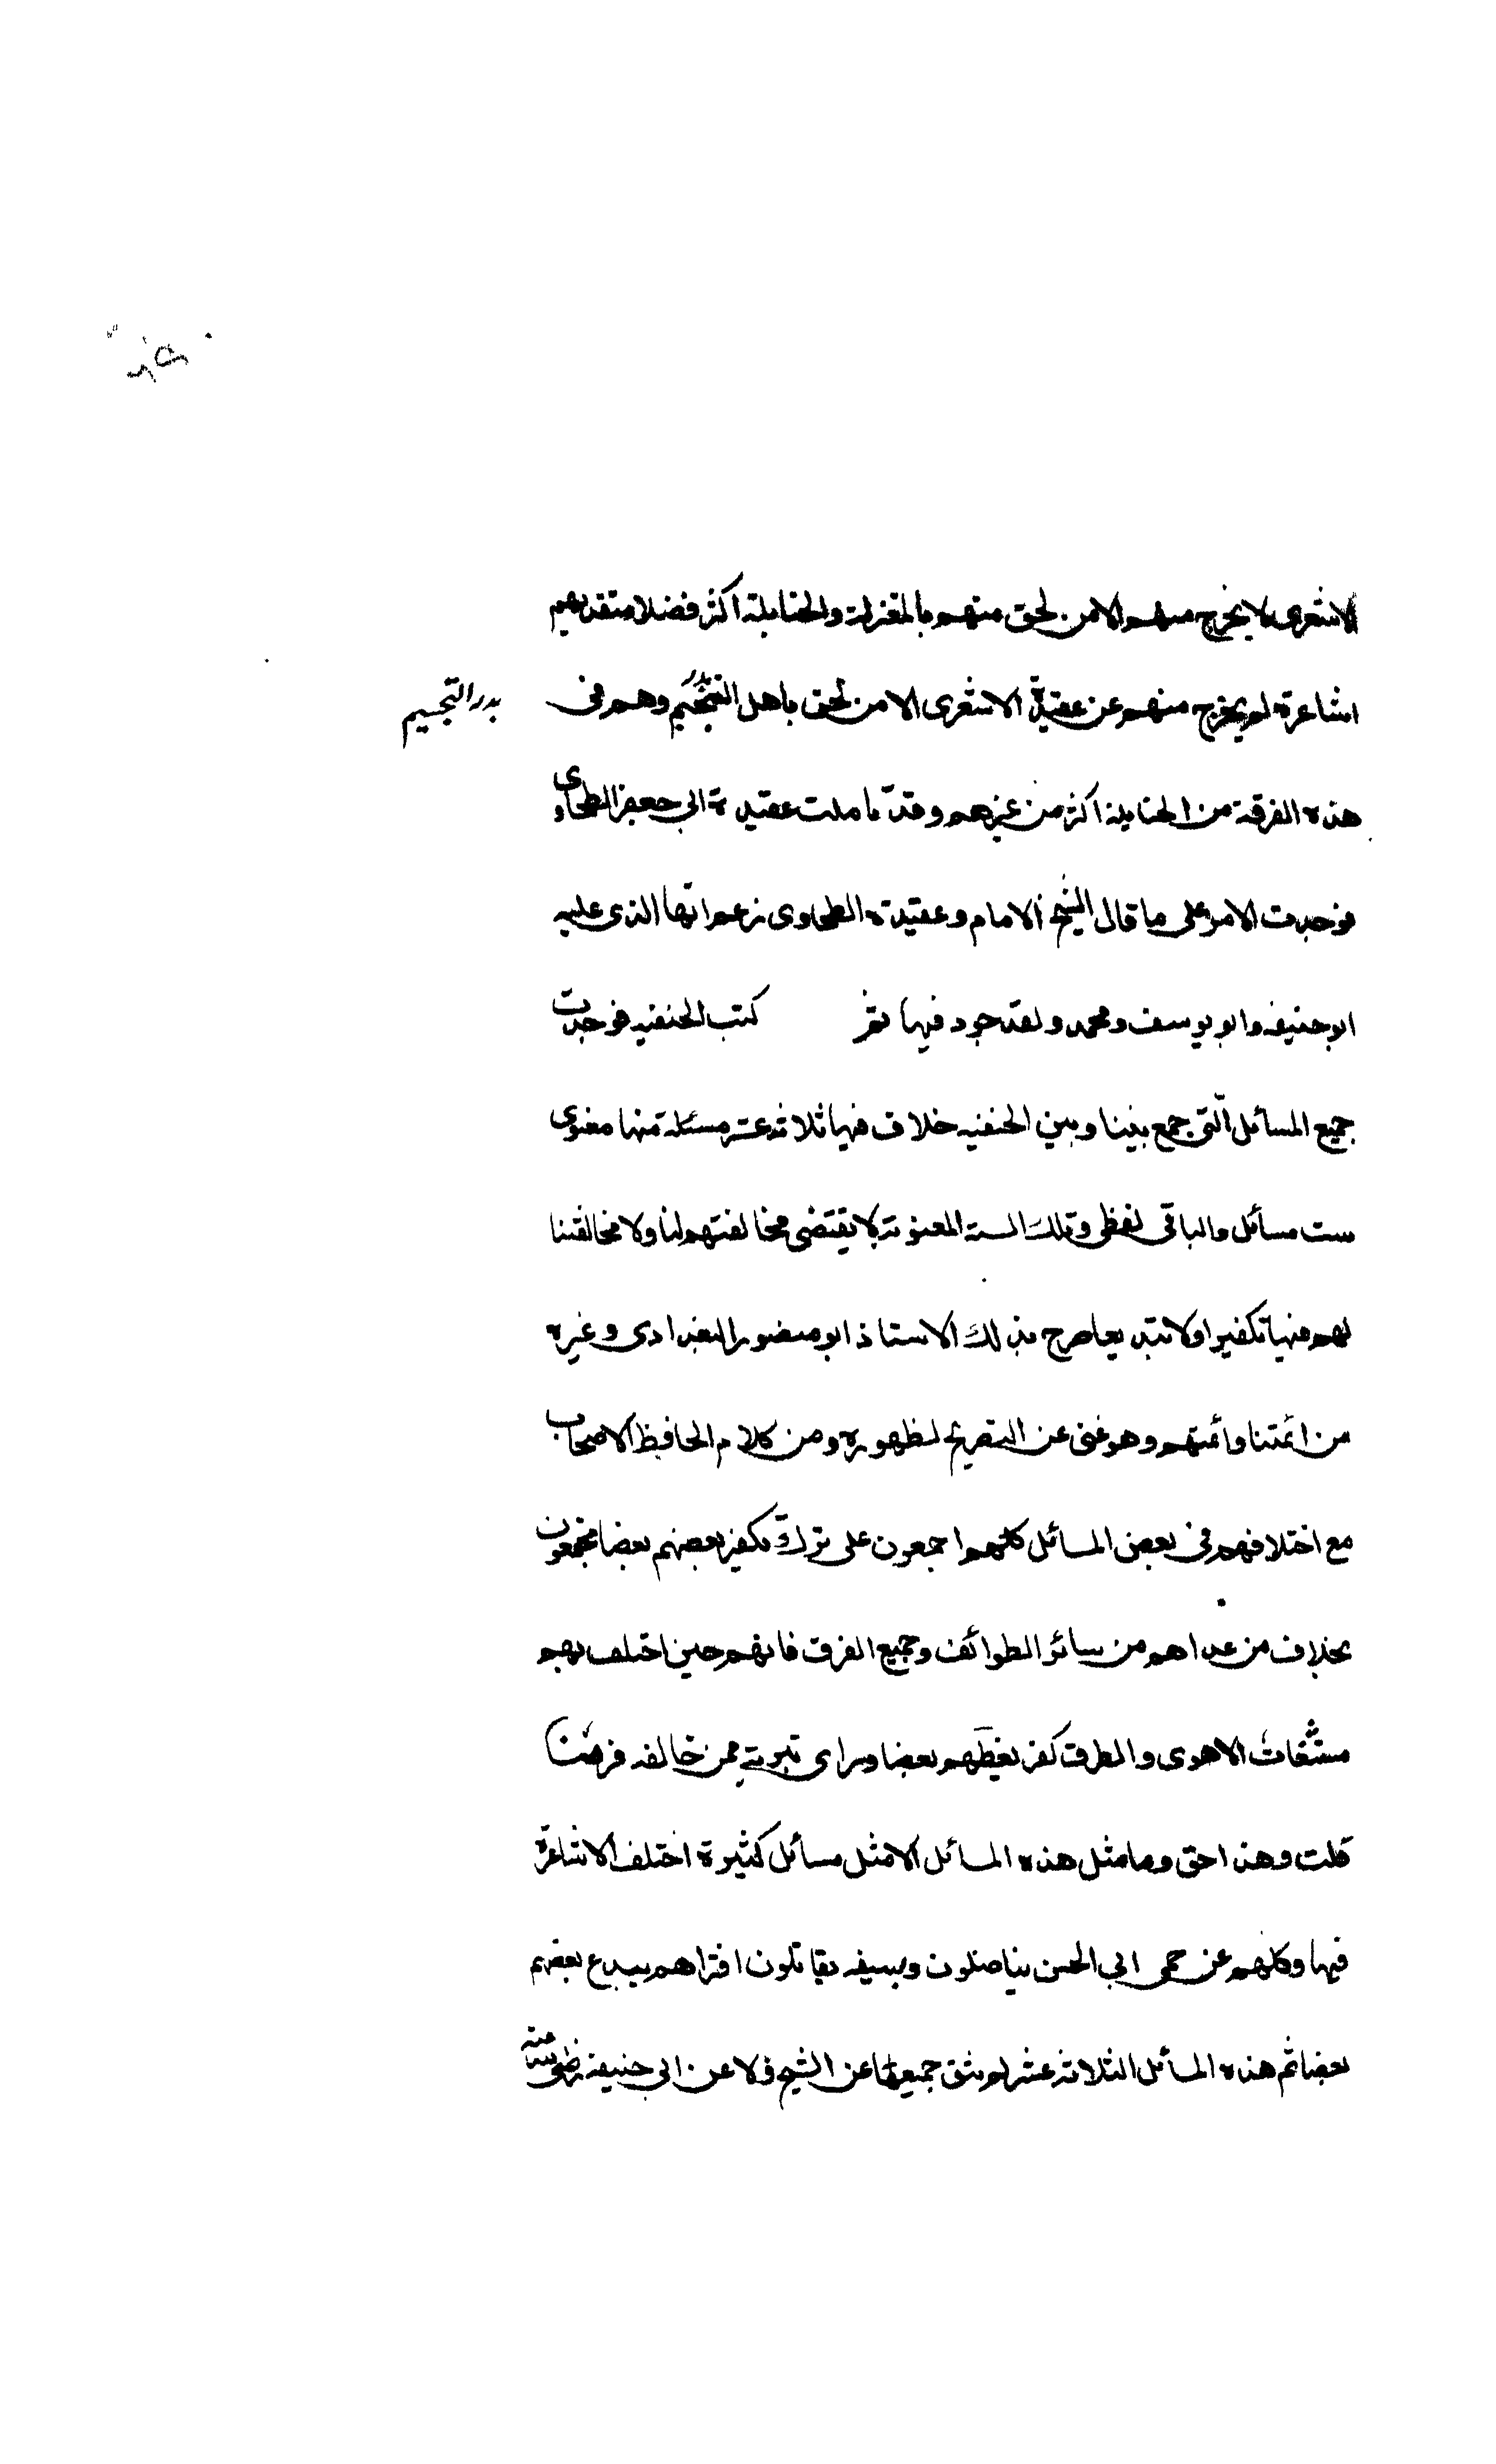 الاشعرى لا يخرج منهم الا من لحق منهم بالمعتزلة والحنابلة اكثر فضلا متقدميهم
اشاعرة لم يخرج منهم عن عقيدة الاشعرى الا من لحق باهل التجسيم وهم فى
بدر التجسيم
هذه الفرقة من الحنابلة اكثر من غيرهم وقد تاملت عقيدة ابى جعفر الطحاوى
فوجدت الامر على ما قال الشيخ الامام وعقيدة الطحاوى زعم انها الذى عليه
ابو حنيفه وابو يوسف ومحمد ولقد جود فيها ثم كتب الحنفيه فوجدت
جميع المسائل التى جمع بيننا وبين الحنفيه خلاف فيها ثلاثة عشر مسئلة منها معنوى
ست مسائل والباقى لفظى وتلك الستة المعنوية لا يقتضى مخالفتهم لنا ولا مخالفتنا
لهم فيها تكفيرا ولا تبديعا صرح بذلك الاستاذ ابو منصور البغدادى وغيره
من ائمتنا وائمتهم وهو غنى عن التصريح لظهوره ومن كلام الحافظ الاصحاب
مع اختلافهم فى بعض المسائل كلهم اجمعون على ترك تكفير بعضهم بعضا مجمعون
بخلاف من عداهم من سائر الطوائف وجميع الفرق فانهم حين اختلف بهم
مشتتات الاهوى والطرق كفر بعضهم بعضا وراى تبريه ممن خالفه فرضا
قلت وهذا حق وما مثل هذه المسائل الا مثل مسائل كثيرة اختلف الاشاعرة
فيها وكلهم عن حمى ابى الحسن يناضلون وبسيفه يقاتلون افتراهم يبدع بعضهم
بعضا ثم هذه المسائل الثلاثة عشر لم يثبت جميعها عن الشيخ ولا عن ابى حنيفة رضى الله عنه